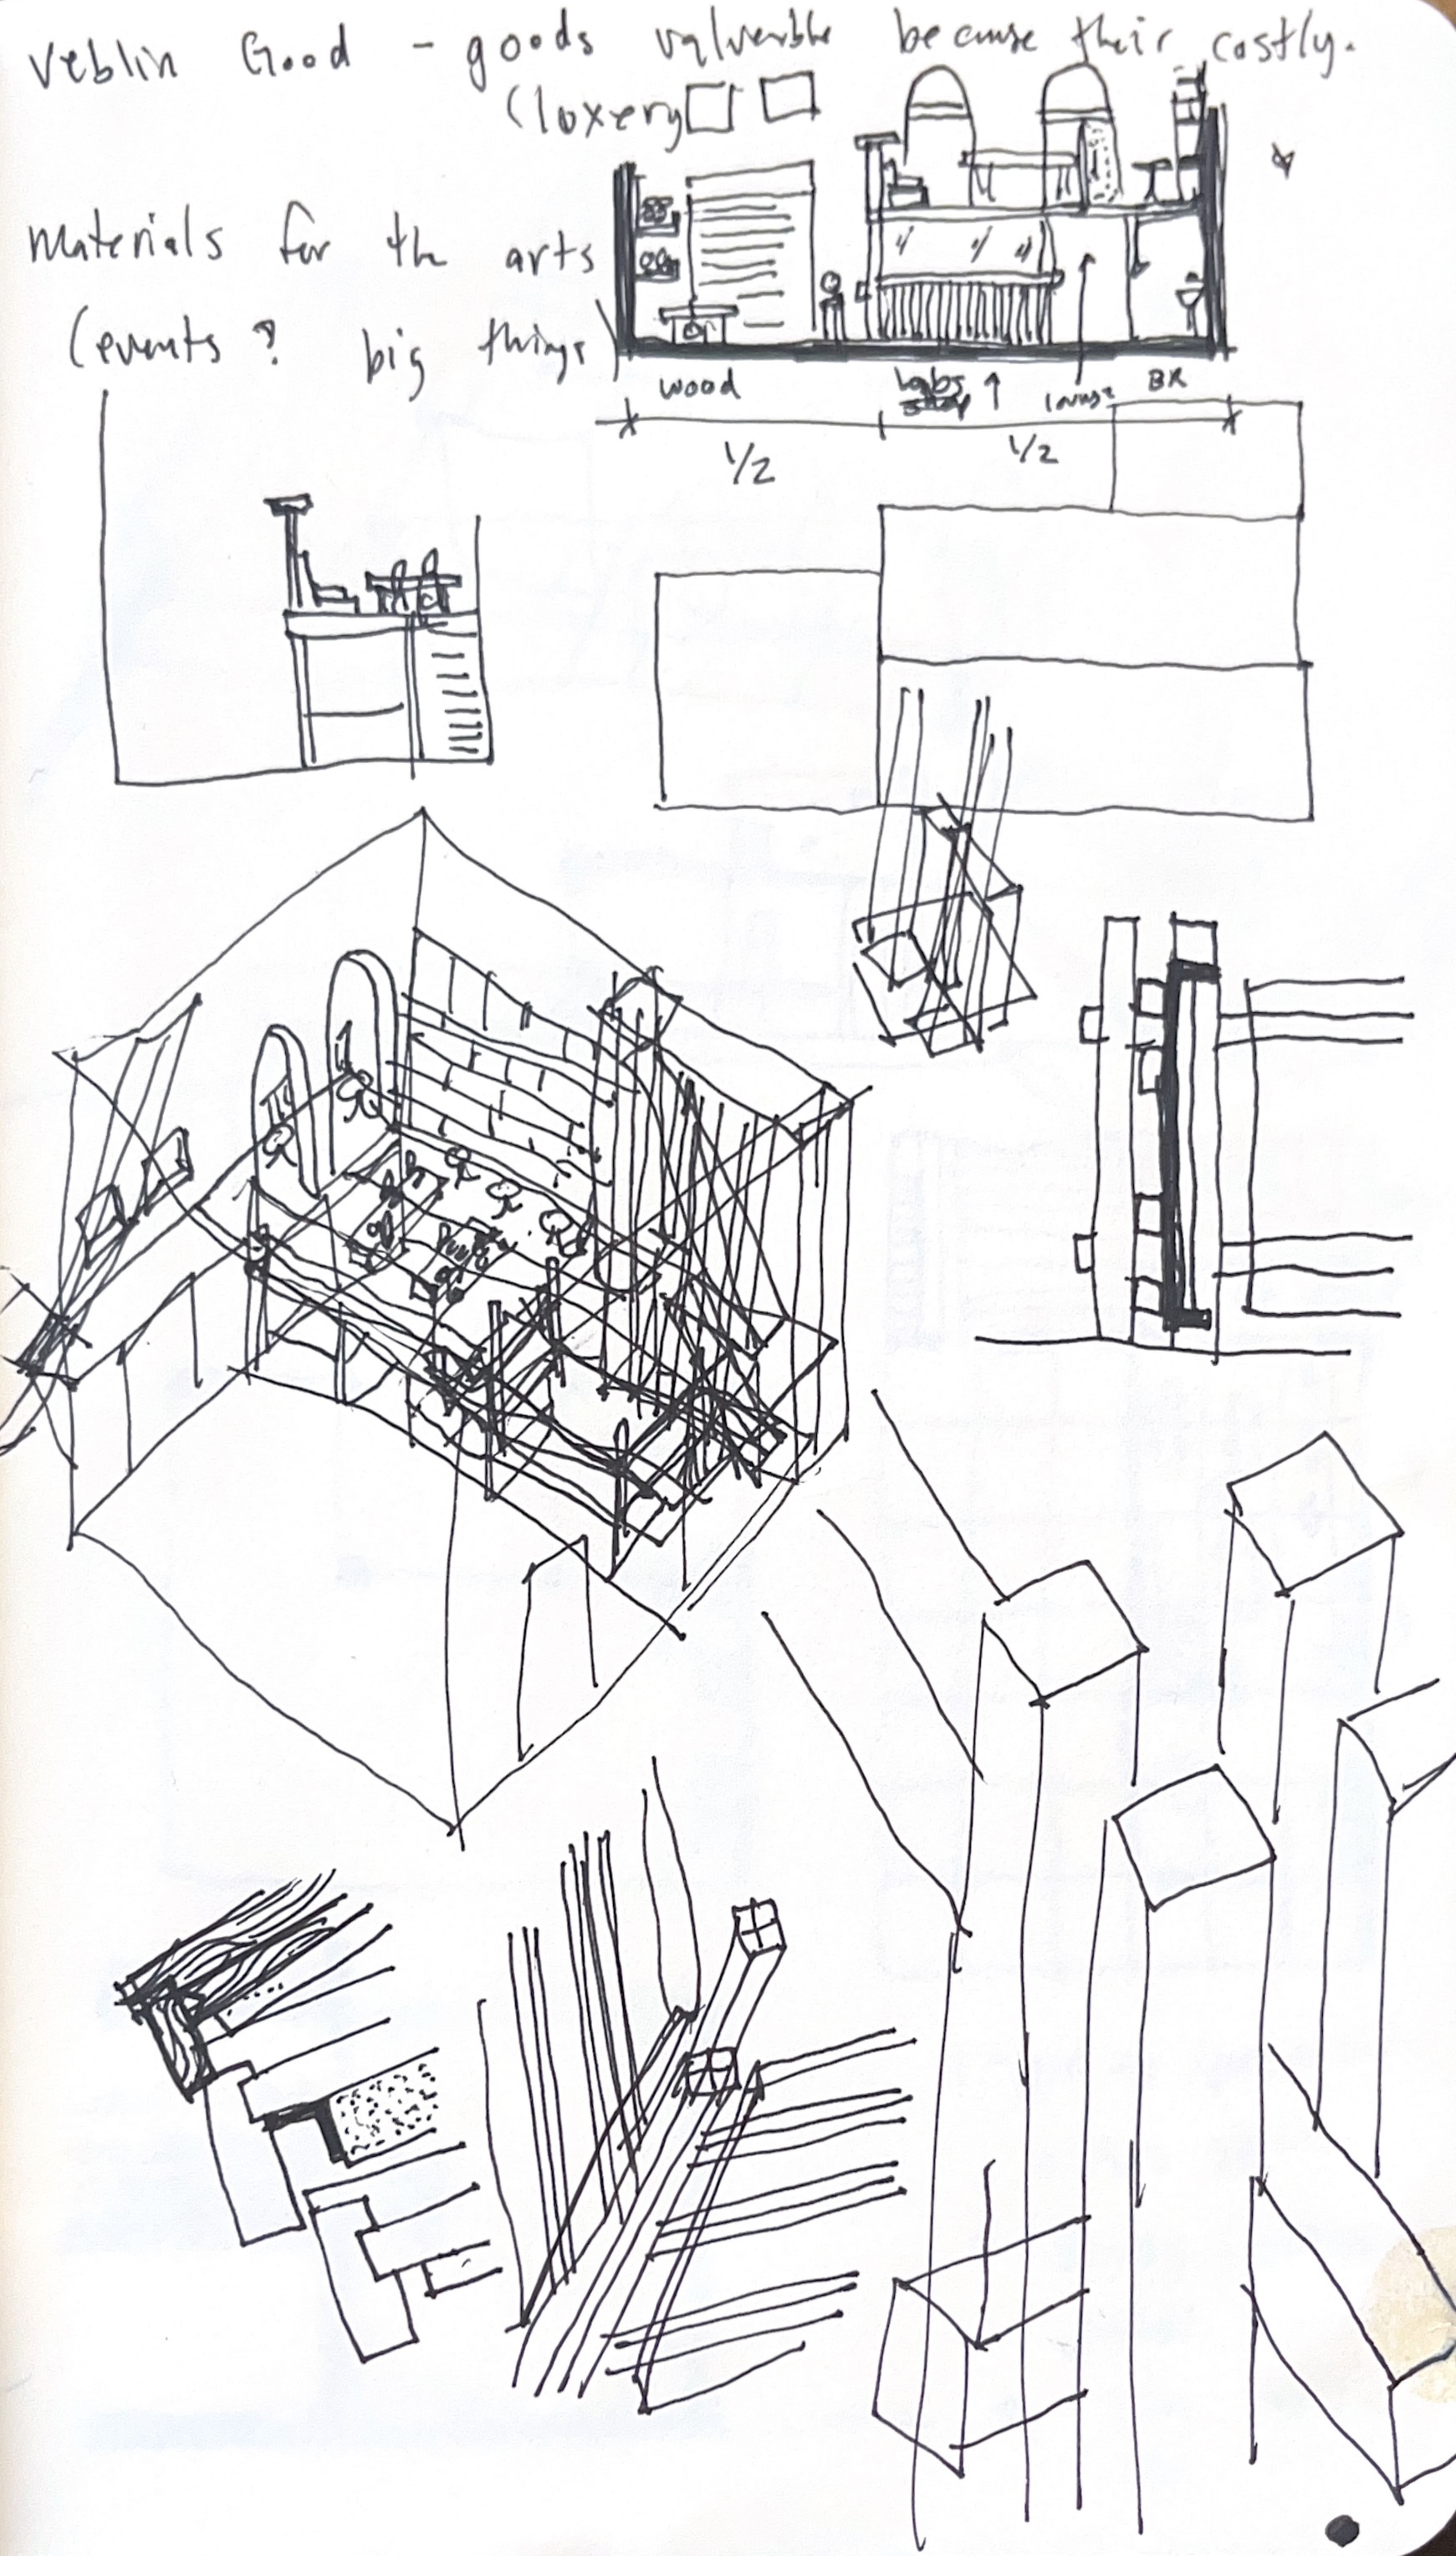 Veblin Good - goods valuerble because their costly.
(luxery
Materials for the arts
(events? big things)
wood
Labs
BR
1/2 1/2